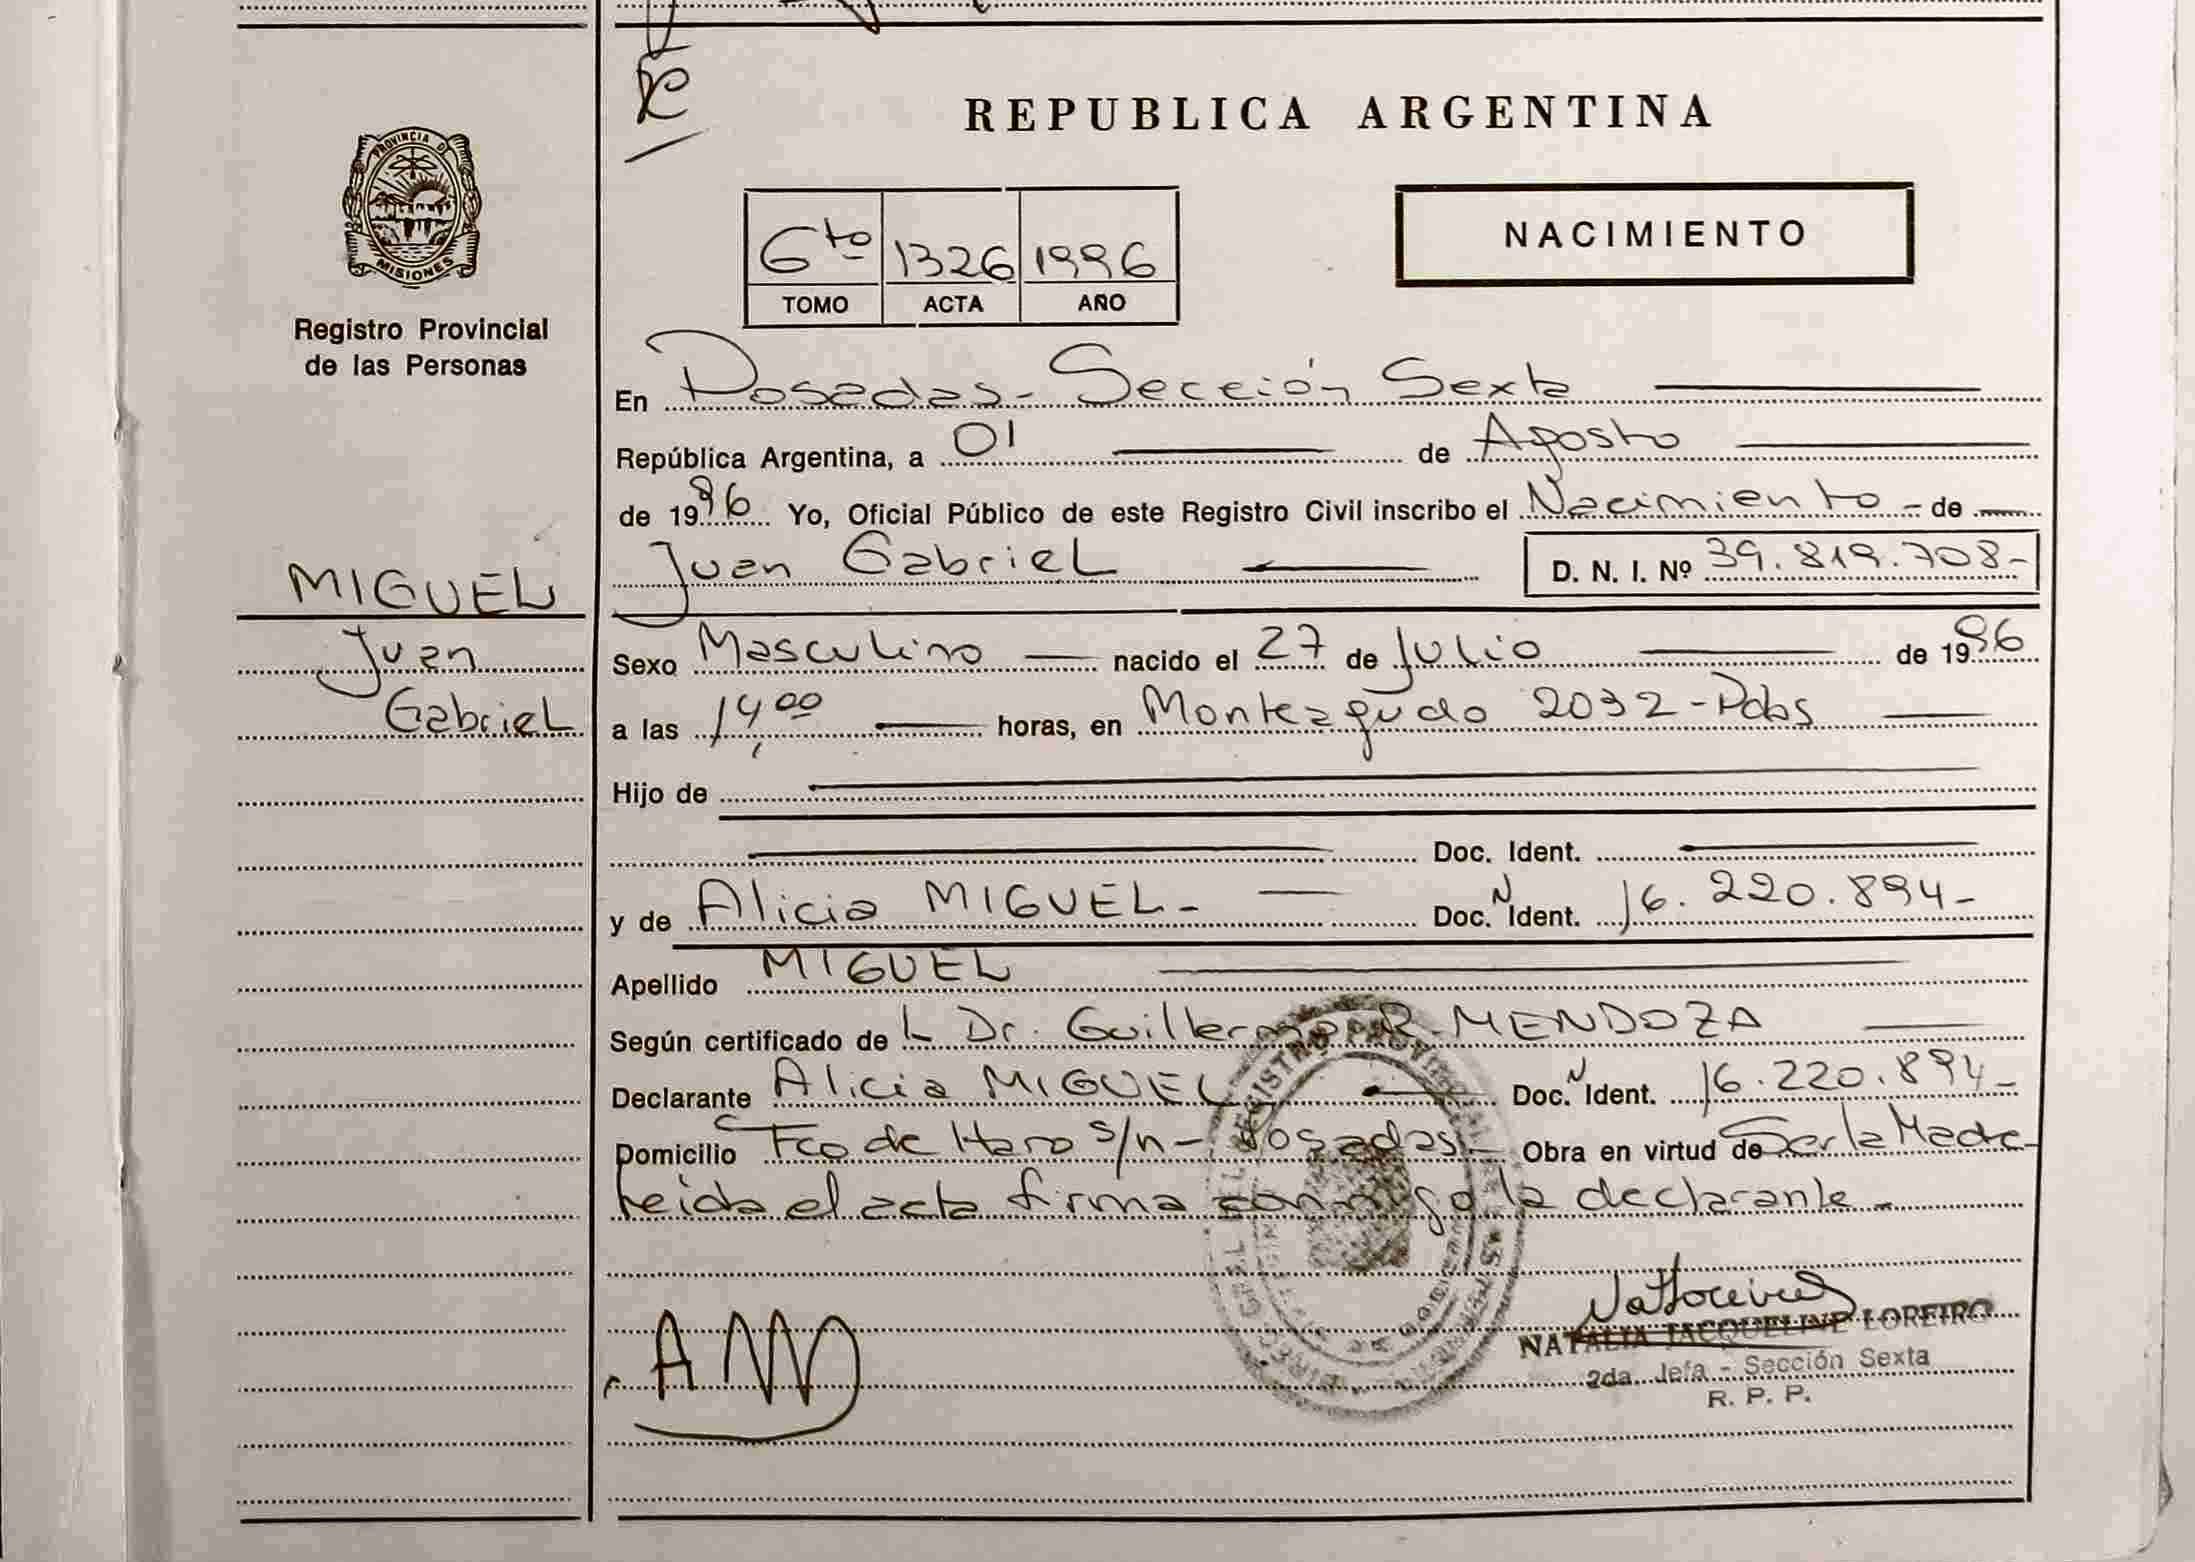 PROVINCIA D
MISIONES
Registro Provincial
de las Personas
MIGUEL
Juan
Gabriel
REPUBLICA ARGENTINA
6to 1326 1996
TOMO ACTA AÑO
NACIMIENTO
En Posadas - Sección Sexta
República Argentina, a 01 de Agosto
de 1996 Yo, Oficial Público de este Registro Civil inscribo el Nacimiento - de
Juan Gabriel D. N. I. Nº 39.819.708-
Sexo Masculino nacido el 27 de Julio de 1996
a las 14,00 horas, en Monteagudo 2032 - Pdas
Hijo de
Doc. Ident.
y de Alicia MIGUEL - Doc. N Ident. 16.220.894-
Apellido MIGUEL
Según certificado de L Dr. Guillermo R. MENDOZA
Declarante Alicia MIGUEL Doc. N Ident. 16.220.894-
Domicilio Fco de Haro s/n - Posadas - Obra en virtud de Ser la Madre -
leida el acta firma conmigo la declarante -
AM
NATALIA JACQUELINE LOREIRO
2da. Jefa - Sección Sexta
R. P. P.